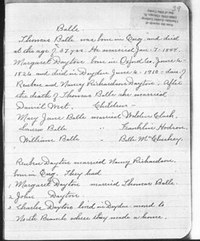 Balls
Thomas Balls was born in Eng. and died
at the age of 57 yrs. He married Jan. 7 - 1844
Margaret Dayton born in June 2 -
1826 and died in Dayton June 6 - 1918; dau of
Reuben and Nancy Richardson Dayton. After
the death of Thomas Balls she married
Dewitt West. Children -
Mary Jane Balls married Welden Clark,
Lewis Balls " Franklin Hodson,
William Balls " Belle McCluskey.
Reuben Dayton married Nancy Richardson,
born in Eng. They had
1 Margaret Dayton married Thomas Balls
2 John Dayton
3 Charles Dayton lived in moved to
North Branch where they made a home.